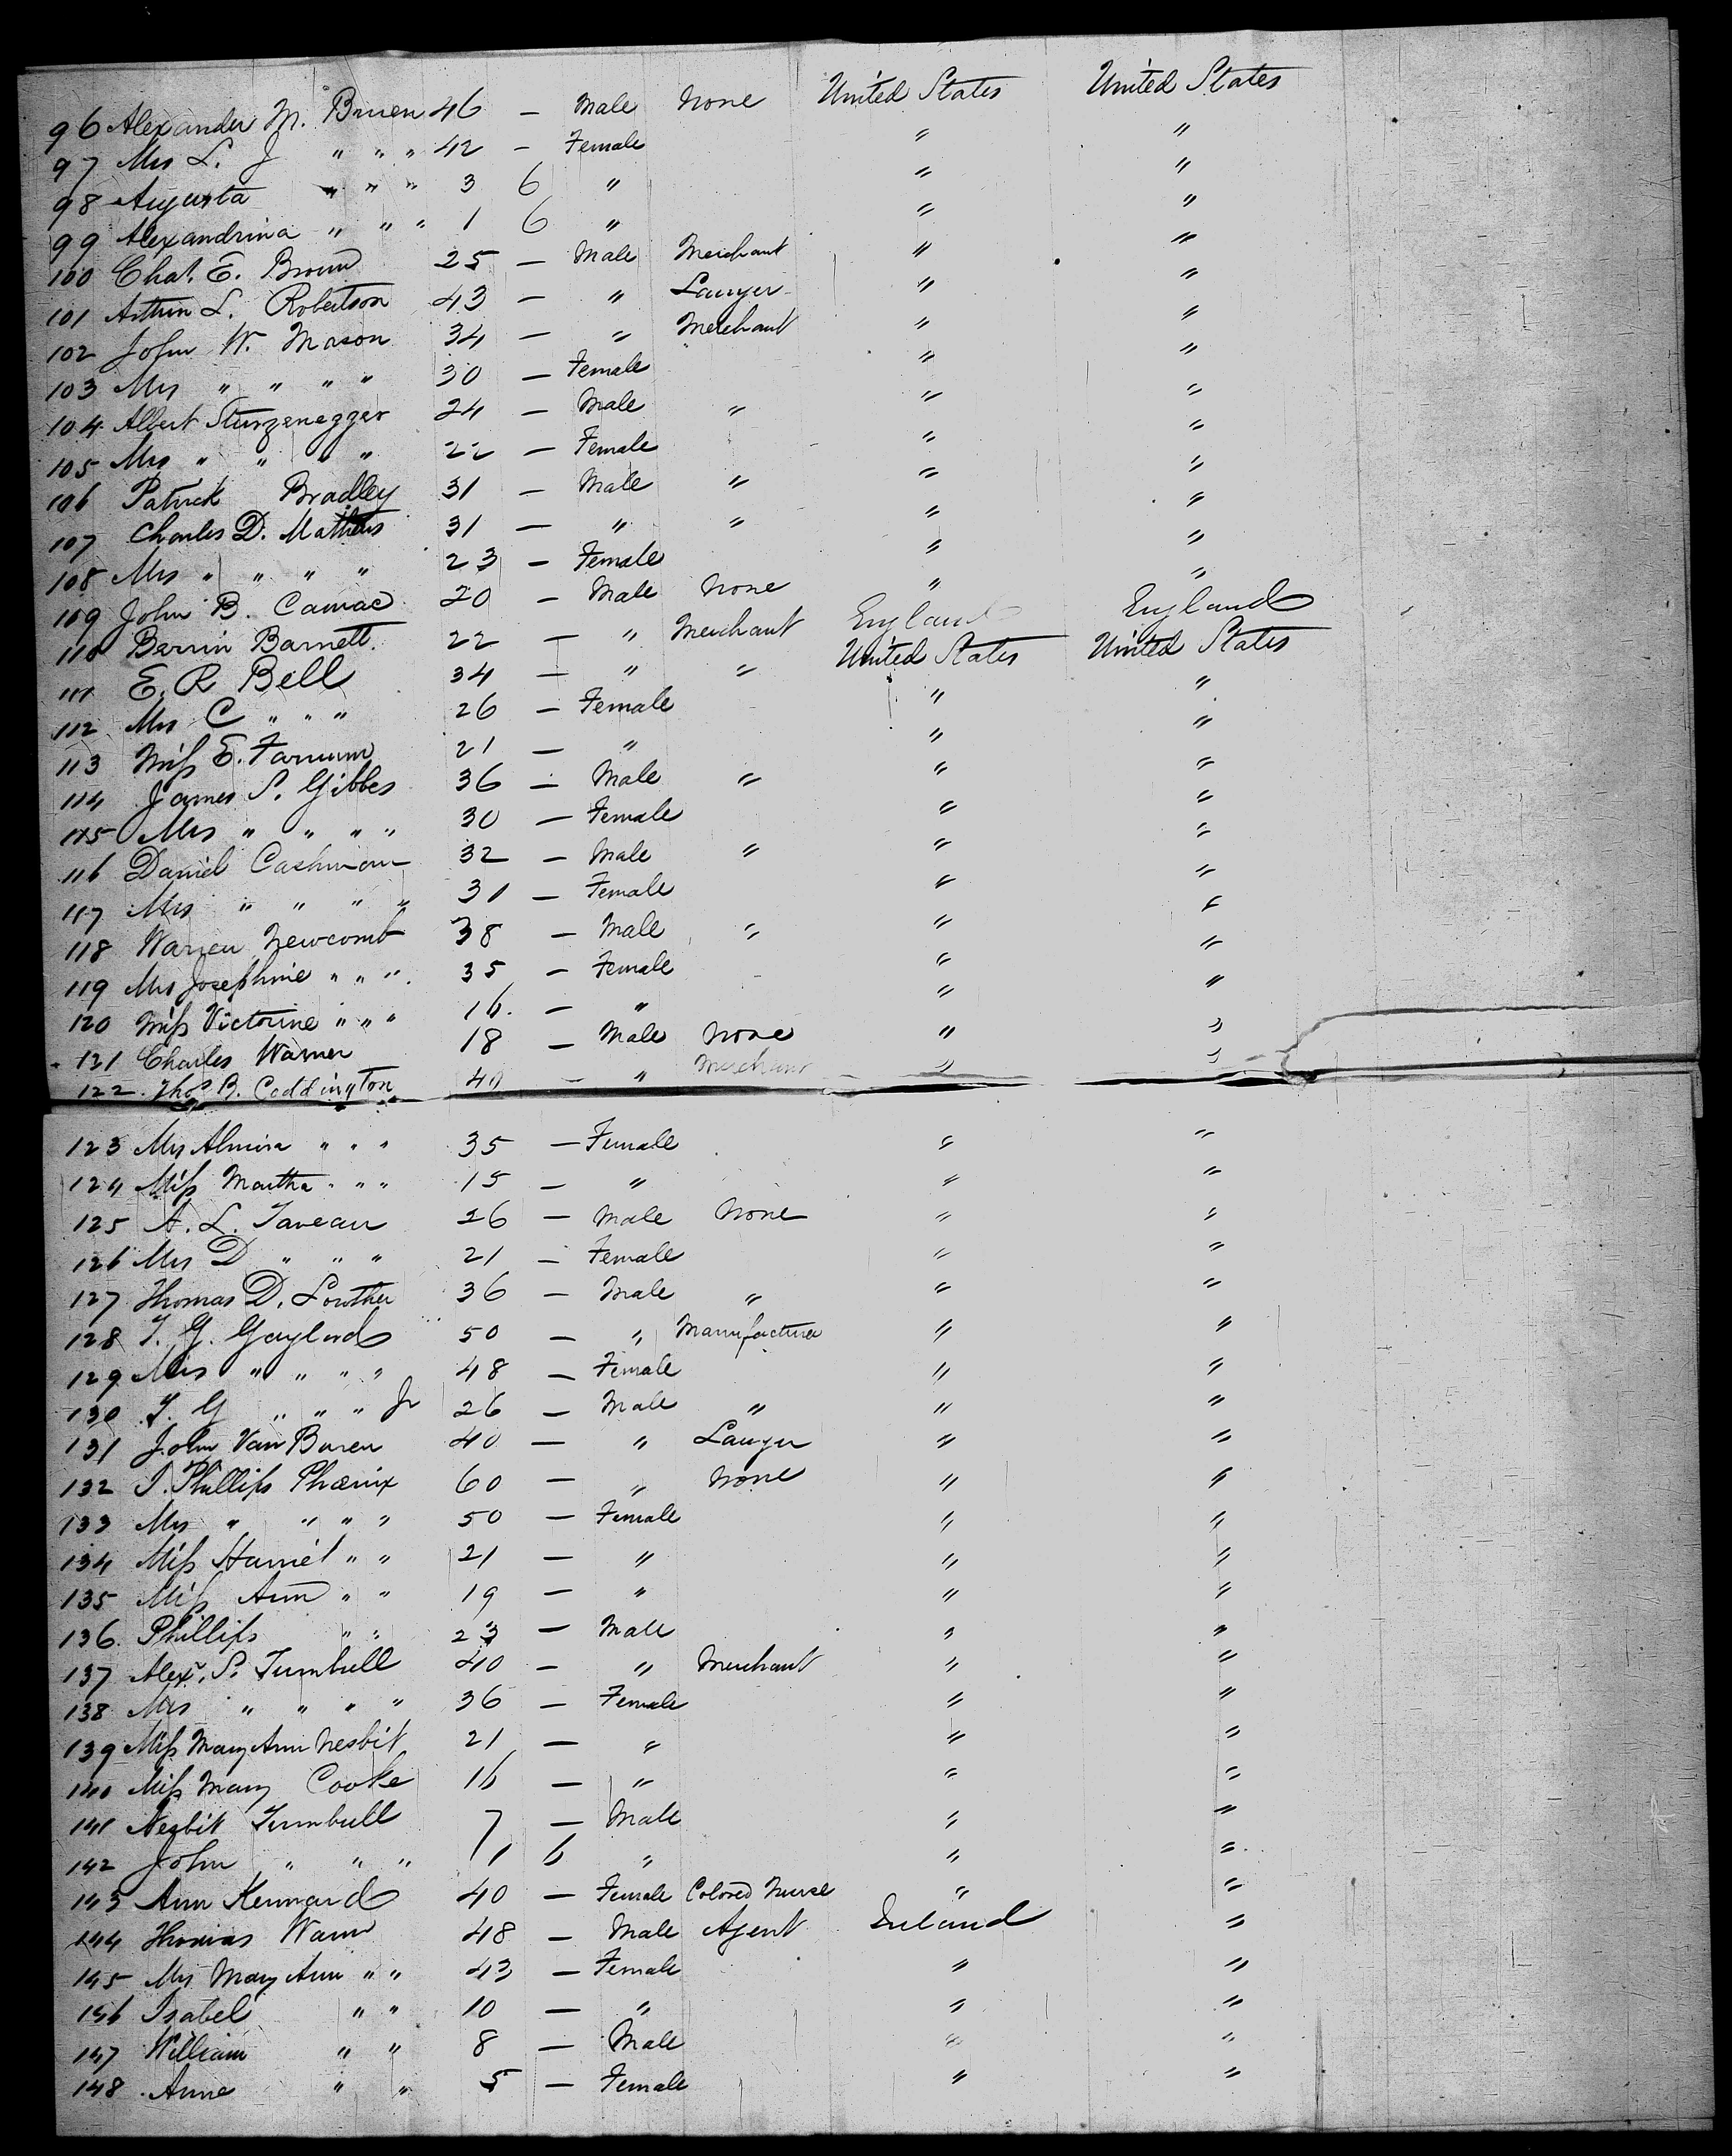 96 Alexander M. Bruen 46 — Male None United States United States
97 Mrs L. J " " " 42 — Female " "
98 Augusta " " " 3 6 " " "
99 Alexandrina " " " 1 6 " " "
100 Chas. E. Brown 25 — Male Merchant " "
101 Arthur L. Robertson 43 — " Lawyer " "
102 John W. Mason 34 — " Merchant " "
103 Mrs " " " " 30 — Female " "
104 Albert Sturzenegger 24 — Male " " "
105 Mrs " " " " 22 — Female " "
106 Patrick Bradley 31 — Male " " "
107 Charles D. Mathews 31 — " " " "
108 Mrs " " " " 23 — Female " "
109 John B. Camac 20 — Male None " "
110 Barrin Barnett. 22 — " Merchant England England
111 E. R Bell 34 — " " United States United States
112 Mrs C " " " 26 — Female " "
113 Miss E. Farnum 21 — " " "
114 James S. Gibbes 36 — Male " " "
115 Mrs " " " " 30 — Female " "
116 Daniel Cashman 32 — Male " " "
117 Mrs " " " " 31 — Female " "
118 Warren Newcomb 38 — Male " " "
119 Mrs Josephine " " " 35 — Female " "
120 Miss Victorine " " " 16. — " " "
121 Charles Warner 18 — Male None " "
122. Thos B. Coddington — " Merchant " "
123 Mrs Almira " " " 35 — Female " "
124 Miss Martha " " " 15 — " " "
125 A. L. Taveau 26 — Male None " "
126 Mrs D " " " 21 — Female " "
127 Thomas D. Lowther 36 — Male " " "
128 T. G. Gaylord 50 — " Manufacturer " "
129 Mrs " " " " 48 — Female " "
130 T. G " " " Jr 26 — Male " " "
131 John Van Buren 40 — " Lawyer " "
132 J. Phillips Phœnix 60 — " None " "
133 Mrs " " " " 50 — Female " "
134 Miss Harriet " " 21 — " " "
135 Miss Ann " " 19 — " " "
136. Phillips " " 23 — Male " "
137 Alexr. S. Turnbull 40 — " Merchant " "
138 Mrs " " " " 36 — Female " "
139 Miss Mary Ann Nesbit 21 — " " "
140 Miss Mary Cooke 16 — " " "
141 Nesbit Turnbull 7 — Male " "
142 John " " " 1 6 " " "
143 Ann Kennard 40 — Female Colored Nurse " "
144 Thomas Wann 48 — Male Agent Ireland "
145 Mrs Mary Ann " " 43 — Female " "
146 Isabel " " 10 — " " "
147 William " " 8 — Male " "
148 Anne " " 5 — Female " "